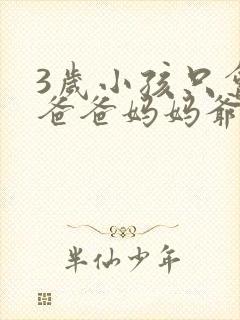 3歲小孩只會
爸爸妈妈爺
半仙少年